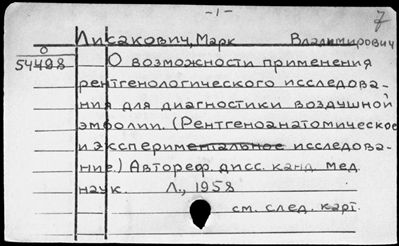 -1-
7
Лисакович, Марк Владимирович
О
54498 О возможности применения
рентгенологического исследова-
ния для диагностики воздушной
эмболии. (Рентгеноанатомическое
и экспериментальное исследова-
ние.) Автореф. дисс. канд. мед.
наук. Л., 1958
см. след. карт.